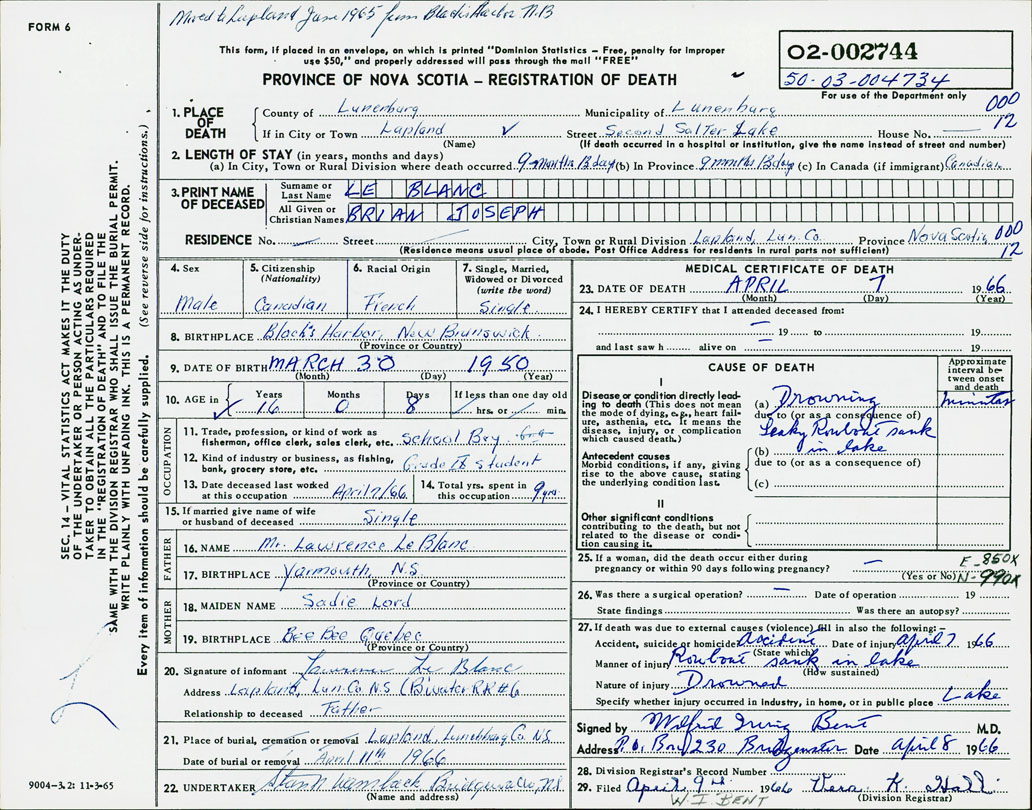 FORM 6
Moved to Lapland June 1965 from Blacks Harbor N.B
This form, if placed in an envelope, on which is printed "Dominion Statistics – Free, penalty for improper
use $50," and properly addressed will pass through the mail "FREE"
PROVINCE OF NOVA SCOTIA – REGISTRATION OF DEATH
02-002744
50-03-004734
For use of the Department only
000
12
1. PLACE OF DEATH
County of Lunenburg Municipality of Lunenburg
If in City or Town Lapland ✓ Street Second Salter Lake House No.
(Name) (If death occurred in a hospital or institution, give the name instead of street and number)
2. LENGTH OF STAY (in years, months and days)
(a) In City, Town or Rural Division where death occurred 9 months 8 day (b) In Province 9 months 8 day (c) In Canada (if immigrant) Canadian
3. PRINT NAME OF DECEASED
Surname or Last Name LE BLANC
All Given or Christian Names BRIAN JOSEPH
RESIDENCE No. Street City, Town or Rural Division Lapland, Lun. Co. Province Nova Scotia
000
12
(Residence means usual place of abode. Post Office Address for residents in rural parts not sufficient)
4. Sex
Male
5. Citizenship
(Nationality)
Canadian
6. Racial Origin
French
7. Single, Married,
Widowed or Divorced
(write the word)
Single
8. BIRTHPLACE Black's Harbor, New Brunswick
(Province or Country)
9. DATE OF BIRTH MARCH 30 1950
(Month) (Day) (Year)
10. AGE in
Years Months Days If less than one day old
16 0 8 hrs. or min.
OCCUPATION
11. Trade, profession, or kind of work as
fisherman, office clerk, sales clerk, etc. School Boy
12. Kind of industry or business, as fishing,
bank, grocery store, etc. Grade IX student
13. Date deceased last worked
at this occupation April 7/66
14. Total yrs. spent in
this occupation 9 yrs.
15. If married give name of wife
or husband of deceased Single
FATHER
16. NAME Mr. Lawrence LeBlanc
17. BIRTHPLACE Yarmouth, N.S.
(Province or Country)
MOTHER
18. MAIDEN NAME Sadie Lord
19. BIRTHPLACE Bee Bee Quebec
(Province or Country)
20. Signature of informant Lawrence Le Blanc
Address Lapland, Lun. Co N.S. (B'water RR#6
Relationship to deceased Father
21. Place of burial, cremation or removal Lapland, Lunenburg Co. N.S.
Date of burial or removal April 11th 1966
22. UNDERTAKER Bridgewater, N.S
(Name and address)
MEDICAL CERTIFICATE OF DEATH
23. DATE OF DEATH APRIL 7 1966
(Month) (Day) (Year)
24. I HEREBY CERTIFY that I attended deceased from:
19 to 19
and last saw h alive on 19
CAUSE OF DEATH
Approximate
interval be-
tween onset
and death
I
Disease or condition directly lead-
ing to death (This does not mean
the mode of dying, e.g., heart fail-
ure, asthenia, etc. It means the
disease, injury, or complication
which caused death.)
(a) Drowning minutes
due to (or as a consequence of)
Leaky Rowboat sank
in lake
Antecedent causes
Morbid conditions, if any, giving
rise to the above cause, stating
the underlying condition last.
(b)
due to (or as a consequence of)
(c)
II
Other significant conditions
contributing to the death, but not
related to the disease or condi-
tion causing it.
25. If a woman, did the death occur either during
pregnancy or within 90 days following pregnancy?
(Yes or No)
E-850X
N-990X
26. Was there a surgical operation? Date of operation 19
State findings Was there an autopsy?
27. If death was due to external causes (violence) fill in also the following:–
Accident, suicide or homicide Accident Date of injury April 7 1966
(State which)
Manner of injury Rowboat sank in lake
(How sustained)
Nature of injury Drowned
Specify whether injury occurred in industry, in home, or in public place Lake
Signed by Wilfrid Irving Bent M.D.
Address P.O. Box 230 Bridgewater Date April 8 1966
28. Division Registrar's Record Number
29. Filed April 9th 1966 Vera K. Hall
W. I. BENT
(Division Registrar)
SEC. 14 – VITAL STATISTICS ACT MAKES IT THE DUTY
OF THE UNDERTAKER OR PERSON ACTING AS UNDER-
TAKER TO OBTAIN ALL THE PARTICULARS REQUIRED
IN THE "REGISTRATION OF DEATH" AND TO FILE THE
SAME WITH THE DIVISION REGISTRAR WHO SHALL ISSUE THE BURIAL PERMIT.
WRITE PLAINLY WITH UNFADING INK. THIS IS A PERMANENT RECORD.
Every item of information should be carefully supplied. (See reverse side for instructions.)
9004-3.2: 11-3-65